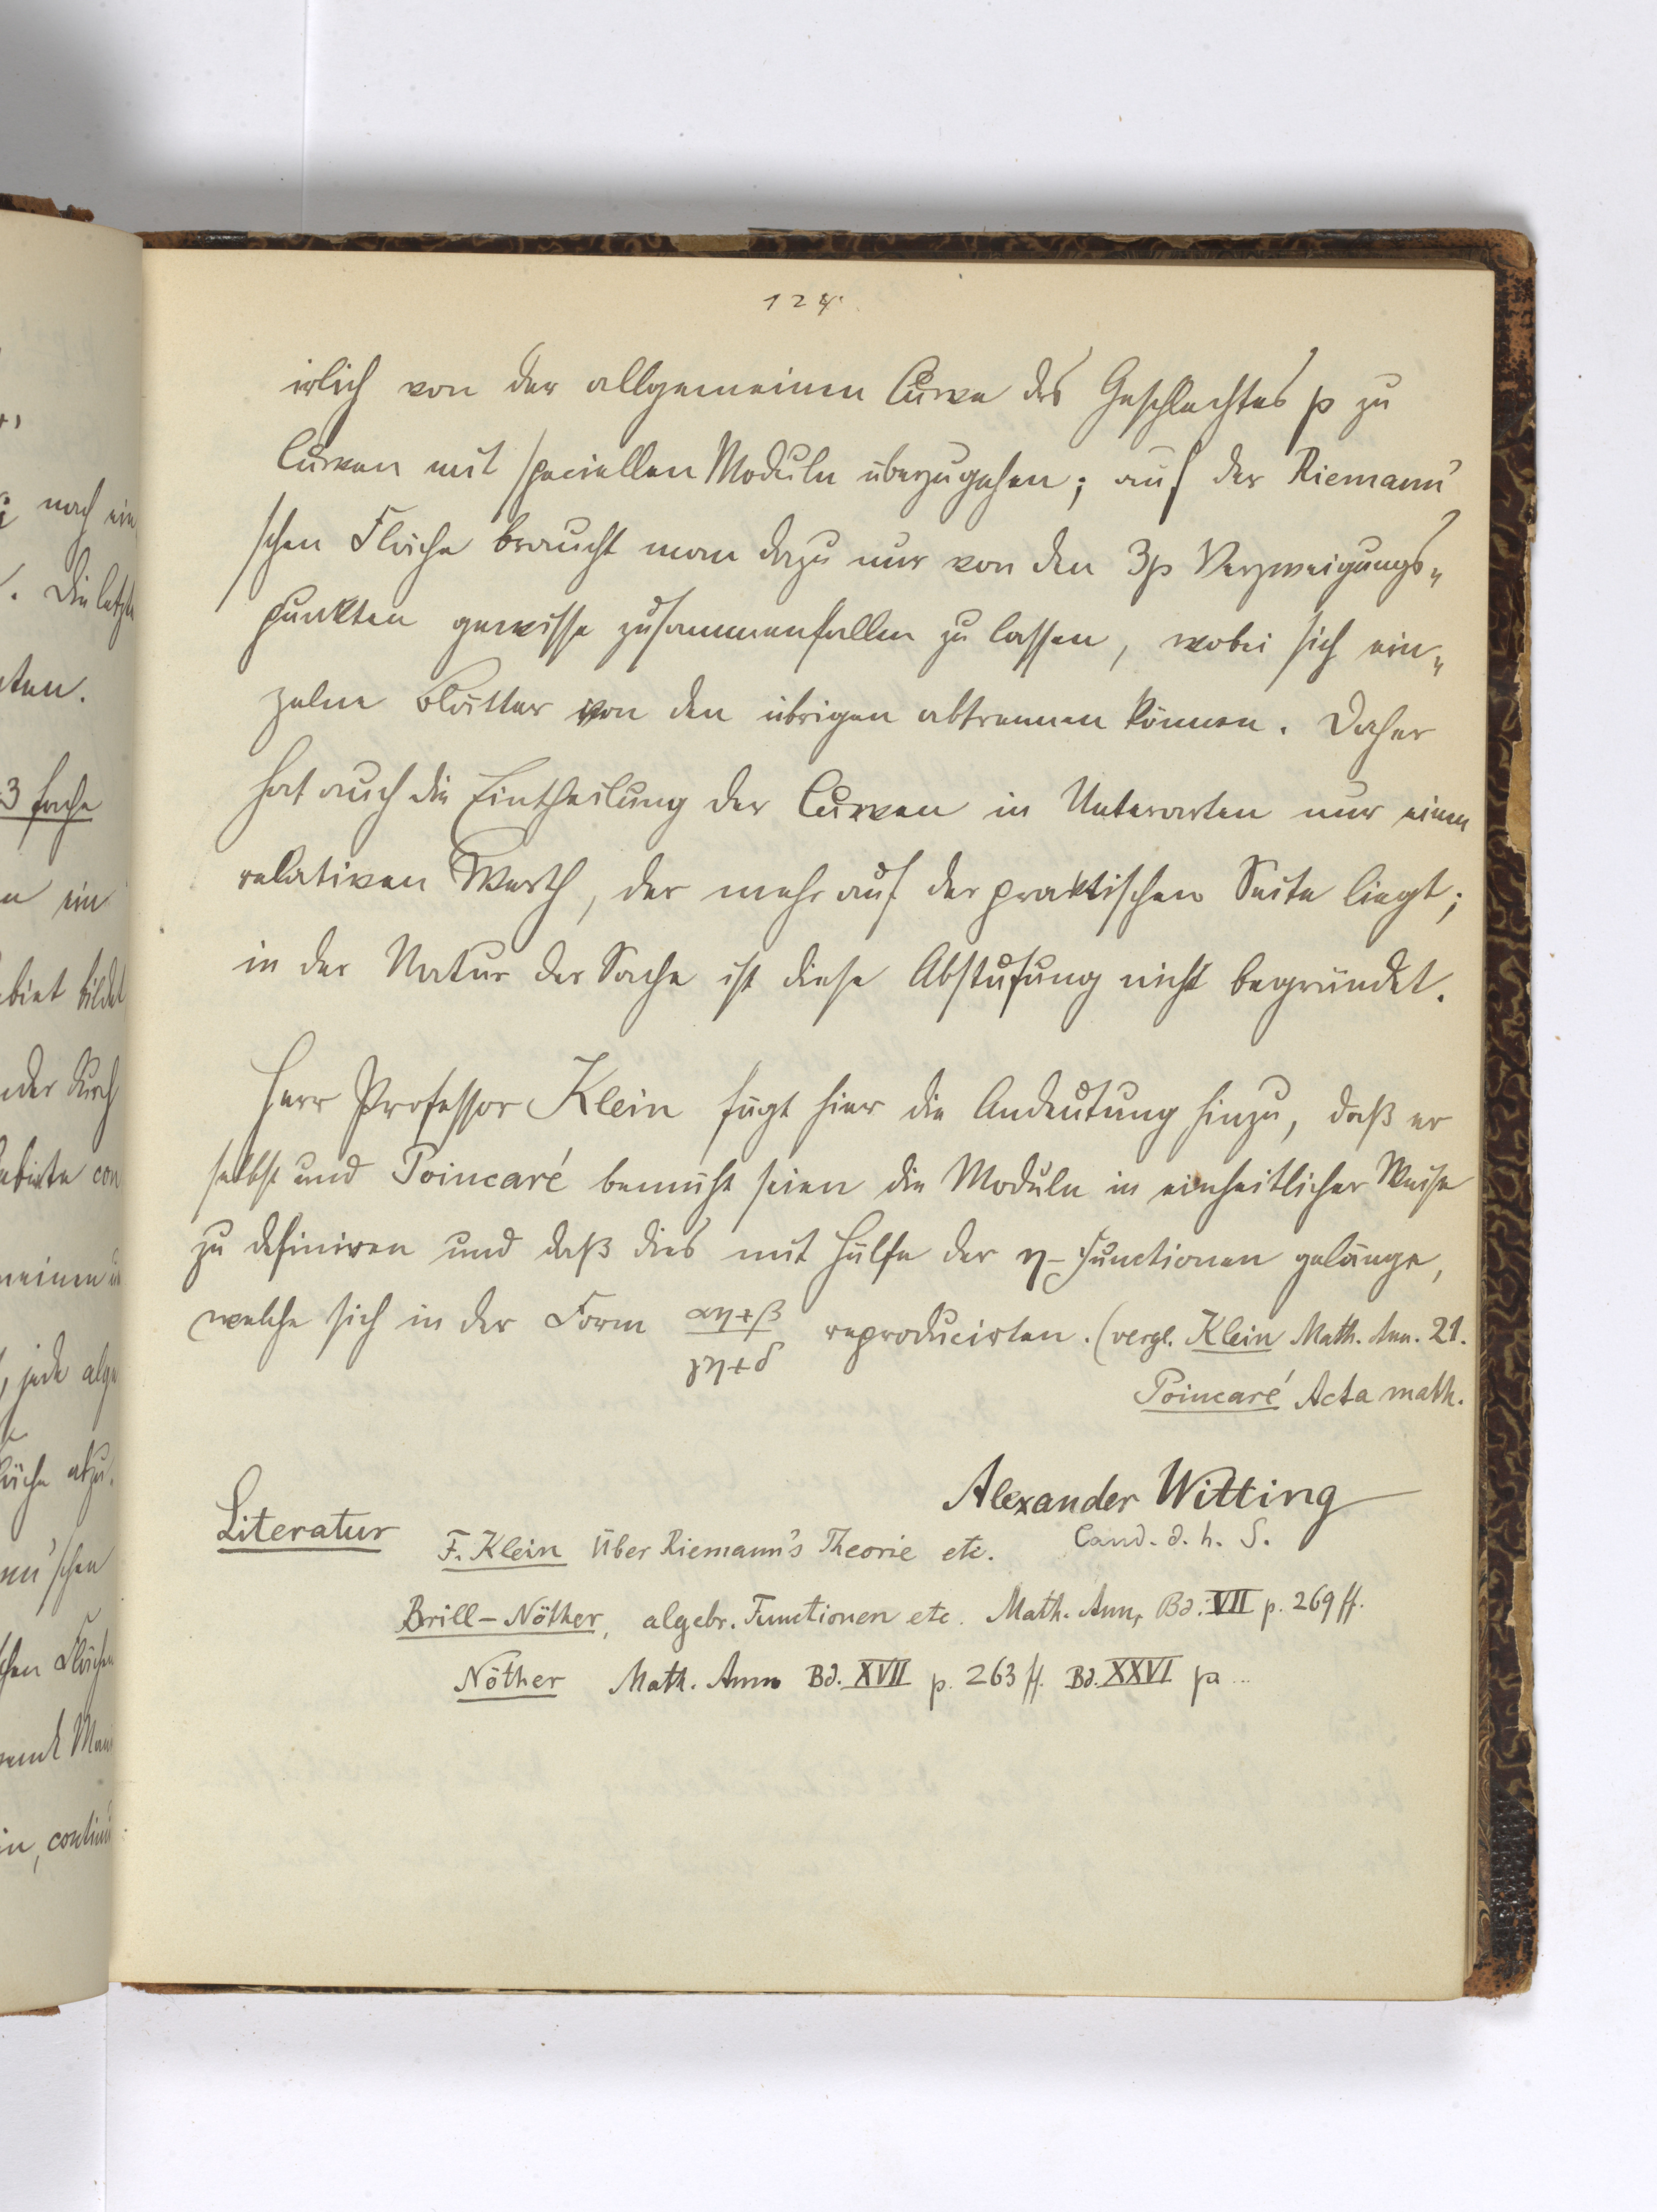 124.
irlich von der allgemeinen Curve des Geschlechtes p zu
Curven mit speciellen Moduln überzugehen; auf der Riemann'
schen Fläche braucht man dazu nur von den 3p Verzweigungs„
punkten gewisse zusammenfallen zu lassen, wobei sich ein„
zelne Blätter von den übrigen abtrennen können. Daher
hat auch die Eintheilung der Curven in Unterarten nur einen
relativen Werth, der mehr auf der praktischen Seite liegt;
in der Natur der Sache ist diese Abstufung nicht begründet.
Herr Professor Klein fügt hier die Andeutung hinzu, daß er
selbst und Poincaré bemüht seien die Moduln in einheitlicher Weise
zu definiren und daß dies mit Hülfe der η-Functionen gelänge,
welche sich in der Form αη+β/γη+δ reproducirten. (vergl. Klein Math. Ann. 21.
Poincaré Acta math.
Alexander Witting
Cand. d. h. S.
Literatur
F. Klein Über Riemann's Theorie etc.
Brill–Nöther, algebr. Functionen etc. Math. Ann. Bd. VII p. 269 ff.
Nöther Math. Ann. Bd. XVII p. 263 ff. Bd. XXVI p...